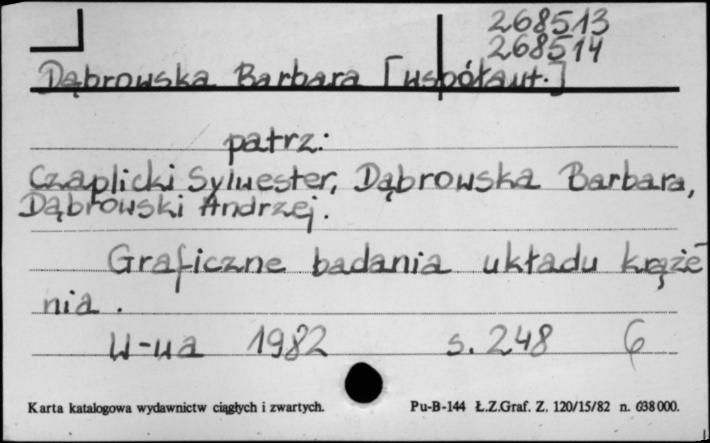 268513
268514
Dąbrowska Barbara [współaut.]
patrz:
Czaplicki Sylwester, Dąbrowska Barbara,
Dąbrowski Andrzej.
Graficzne badania układu krąże-
nia.
W-wa 1982 s. 248 6
Karta katalogowa wydawnictw ciągłych i zwartych. Pu-B-144 Ł.Z.Graf. Z. 120/15/82 n. 638000.